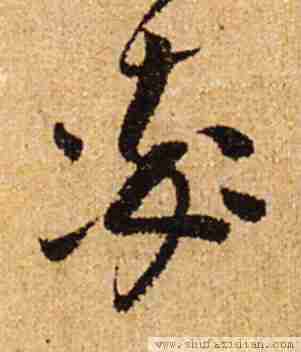 率
www.shufazidian.com